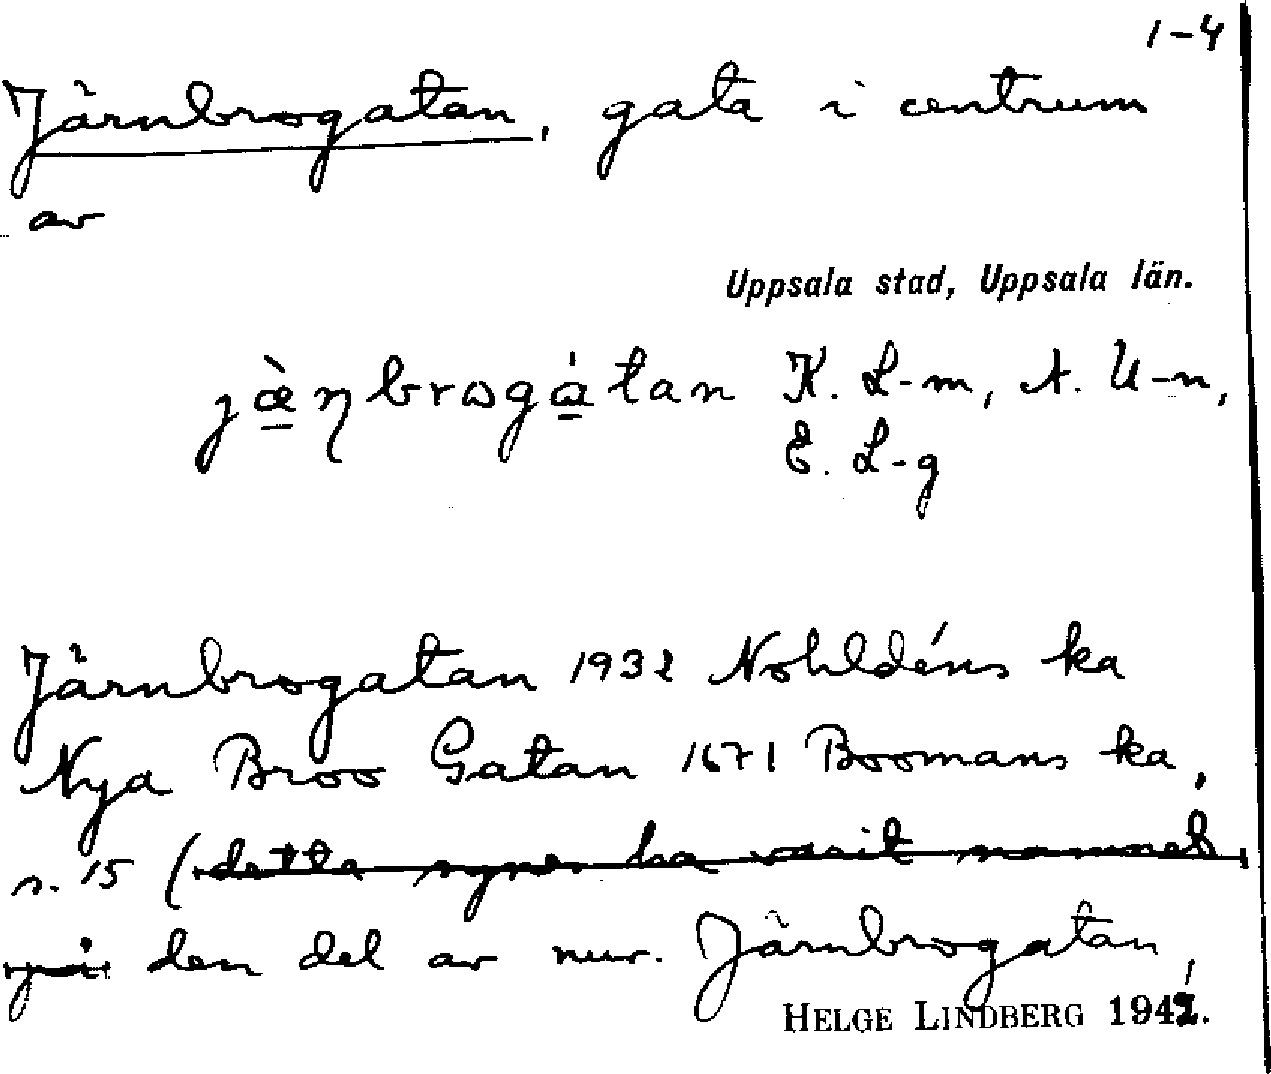 1-4
Järnbrogatan, gata i centrum
av
Uppsala stad, Uppsala län.
jæ̀ɳbrωgátan K. L-m, A. U-n,
E. L-g
Järnbrogatan 1932 Nohldéns ka
Nya Broo Gatan 1671 Boomans ka,
s. 15 (detta synes ha varit namnet
på den del av nuv. Järnbrogatan,
HELGE LINDBERG 1941.